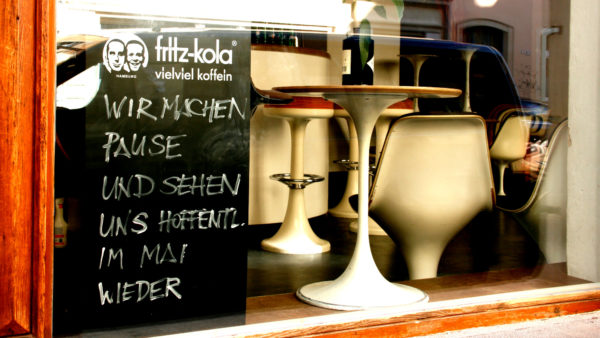 fritz-kola®
HAMBURG
vielviel koffein
WIR MACHEN
PAUSE
UND SEHEN
UNS HOFFENTL.
IM MAI
WIEDER